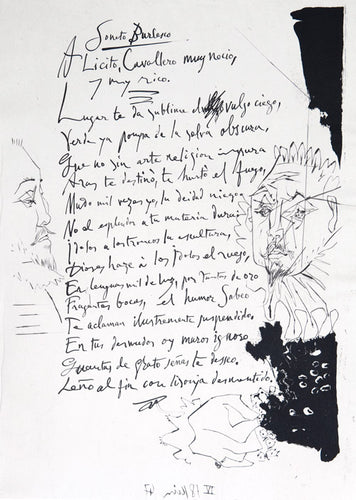 Soneto Burlesco
A Licito, Cavallero muy necio,
y muy rico.
Lugar te da sublime el vulgo ciego,
Verde ya pompa de la selva obscura,
Que no sin arte religion impura
Aras te destinò, te hurtò al fuego,
Mudo mil vezes yo, la deidad niego,
No el esplendor a tu materia dura:
Idolos a los troncos la escultura,
Dioses haze à los Idolos el ruego,
En lenguas mil de luz, por tantas de oro
Fragantes bocas, el humor Sabeo
Te aclaman ilustremente suspendido,
En tus desnudos oy muros ignoro
Quantas de grato señas te deseo,
Leño al fin con lisonja desmentido.